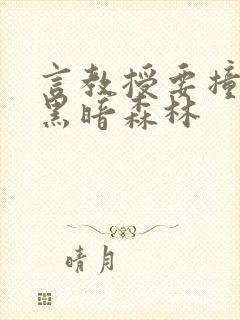 言教授要撞
黑暗森林
晴月